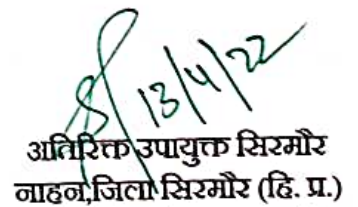 13/4/22
अतिरिक्त उपायुक्त सिरमौर
नाहन,जिला सिरमौर (हि. प्र.)